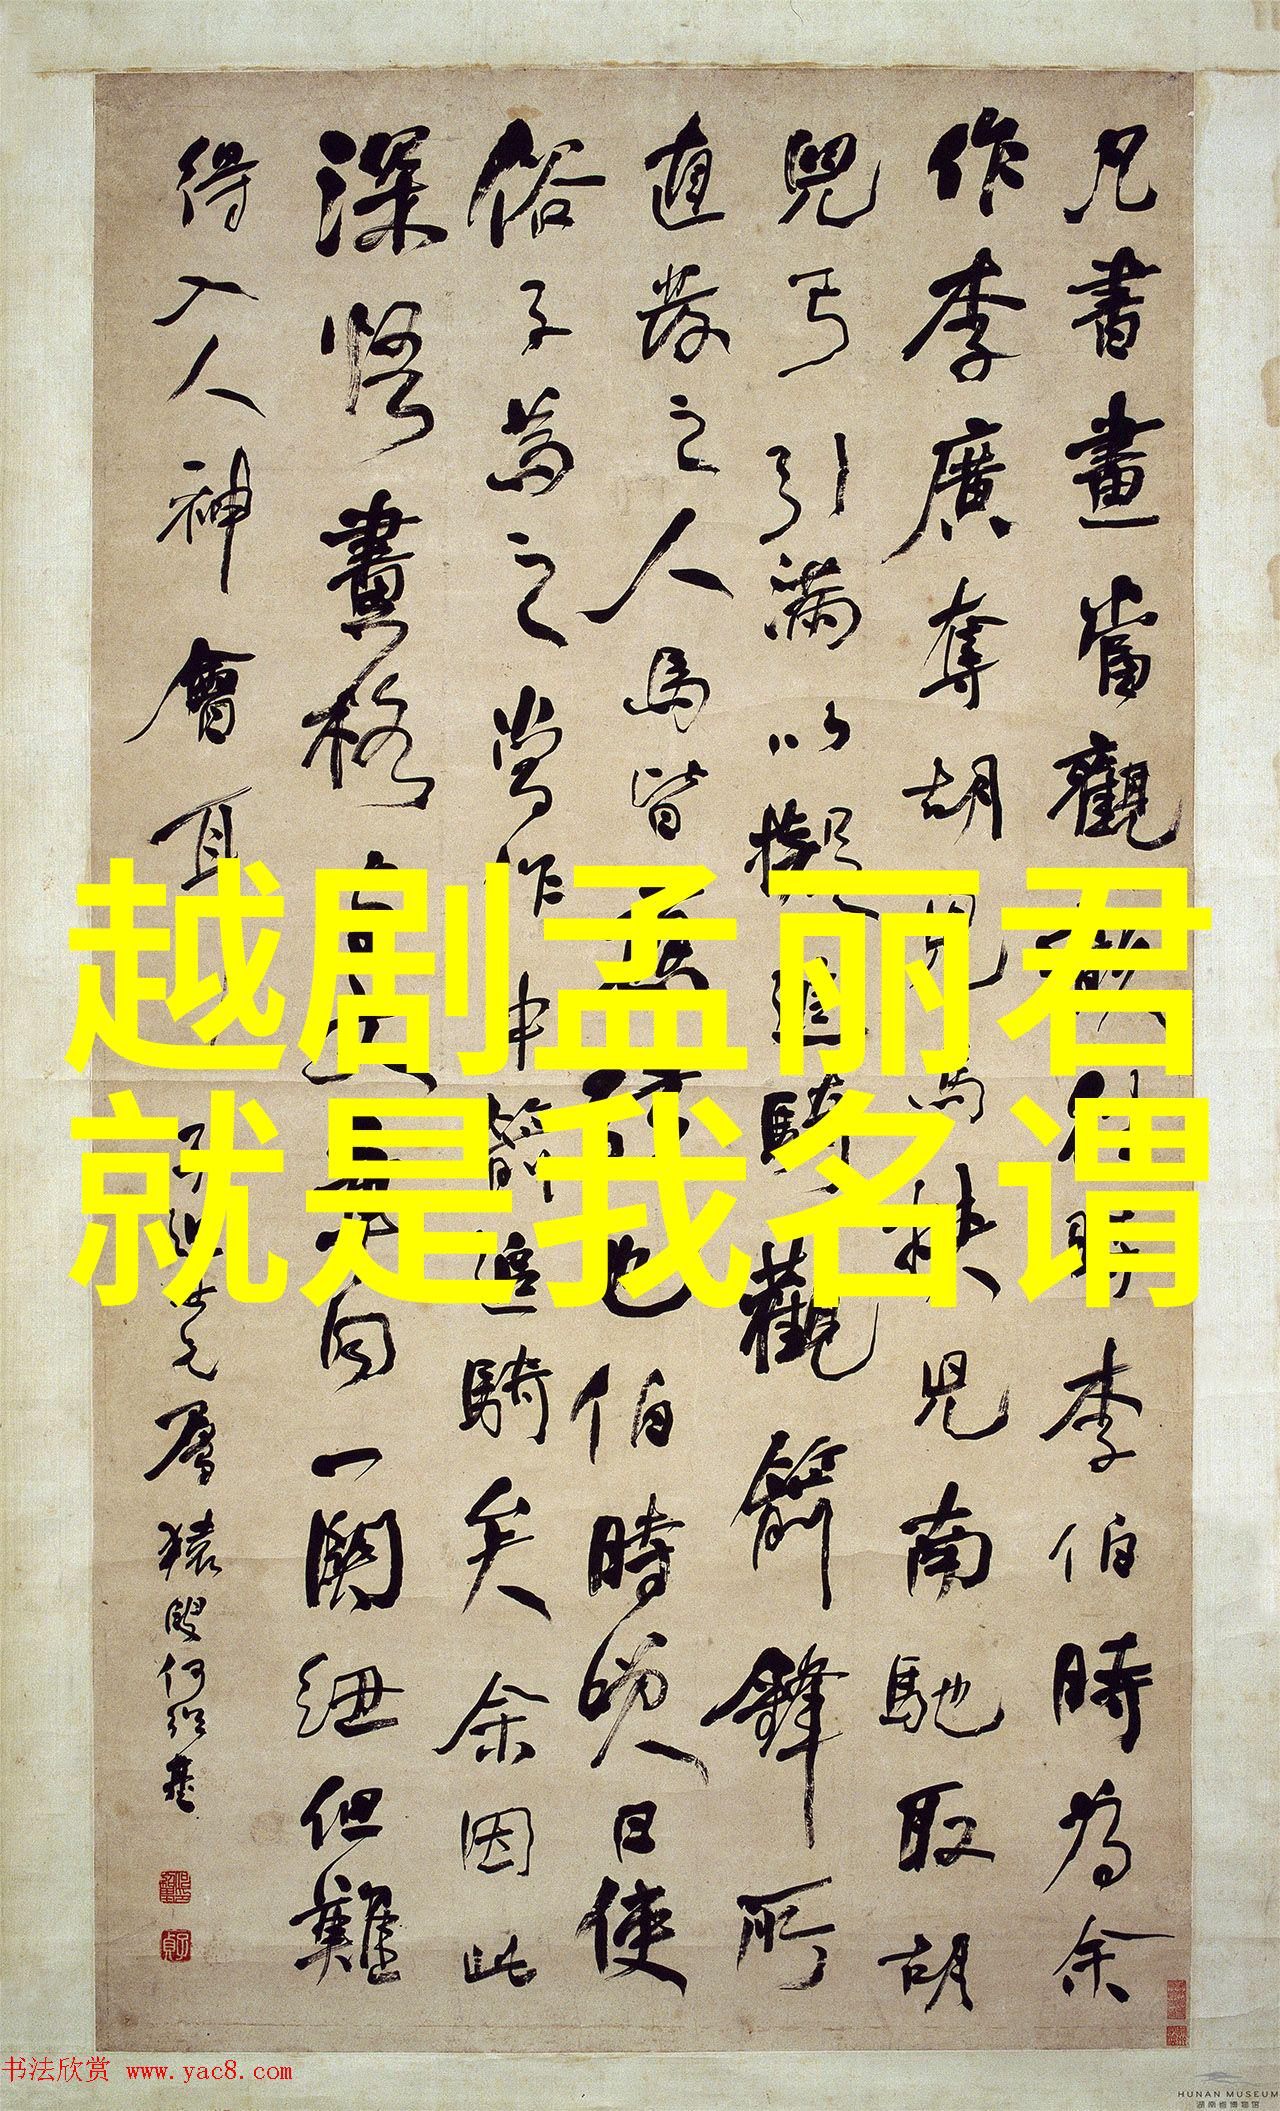 凡書畫當觀韻往時李伯時為余
作李廣奪胡兒馬挾兒南馳取胡
兒弓引滿以擬追騎觀箭鋒所
直發之人馬皆應弦也伯時笑曰使
俗子為之當作中箭追騎矣余因此
深悟畫格與文章同一關紐但難
得入人神會耳
子
猿叟何紹基
越剧孟丽君
就是我名谓
书法欣赏 www.yac8.com
HUNAN MUSEUM
湖南省博物馆